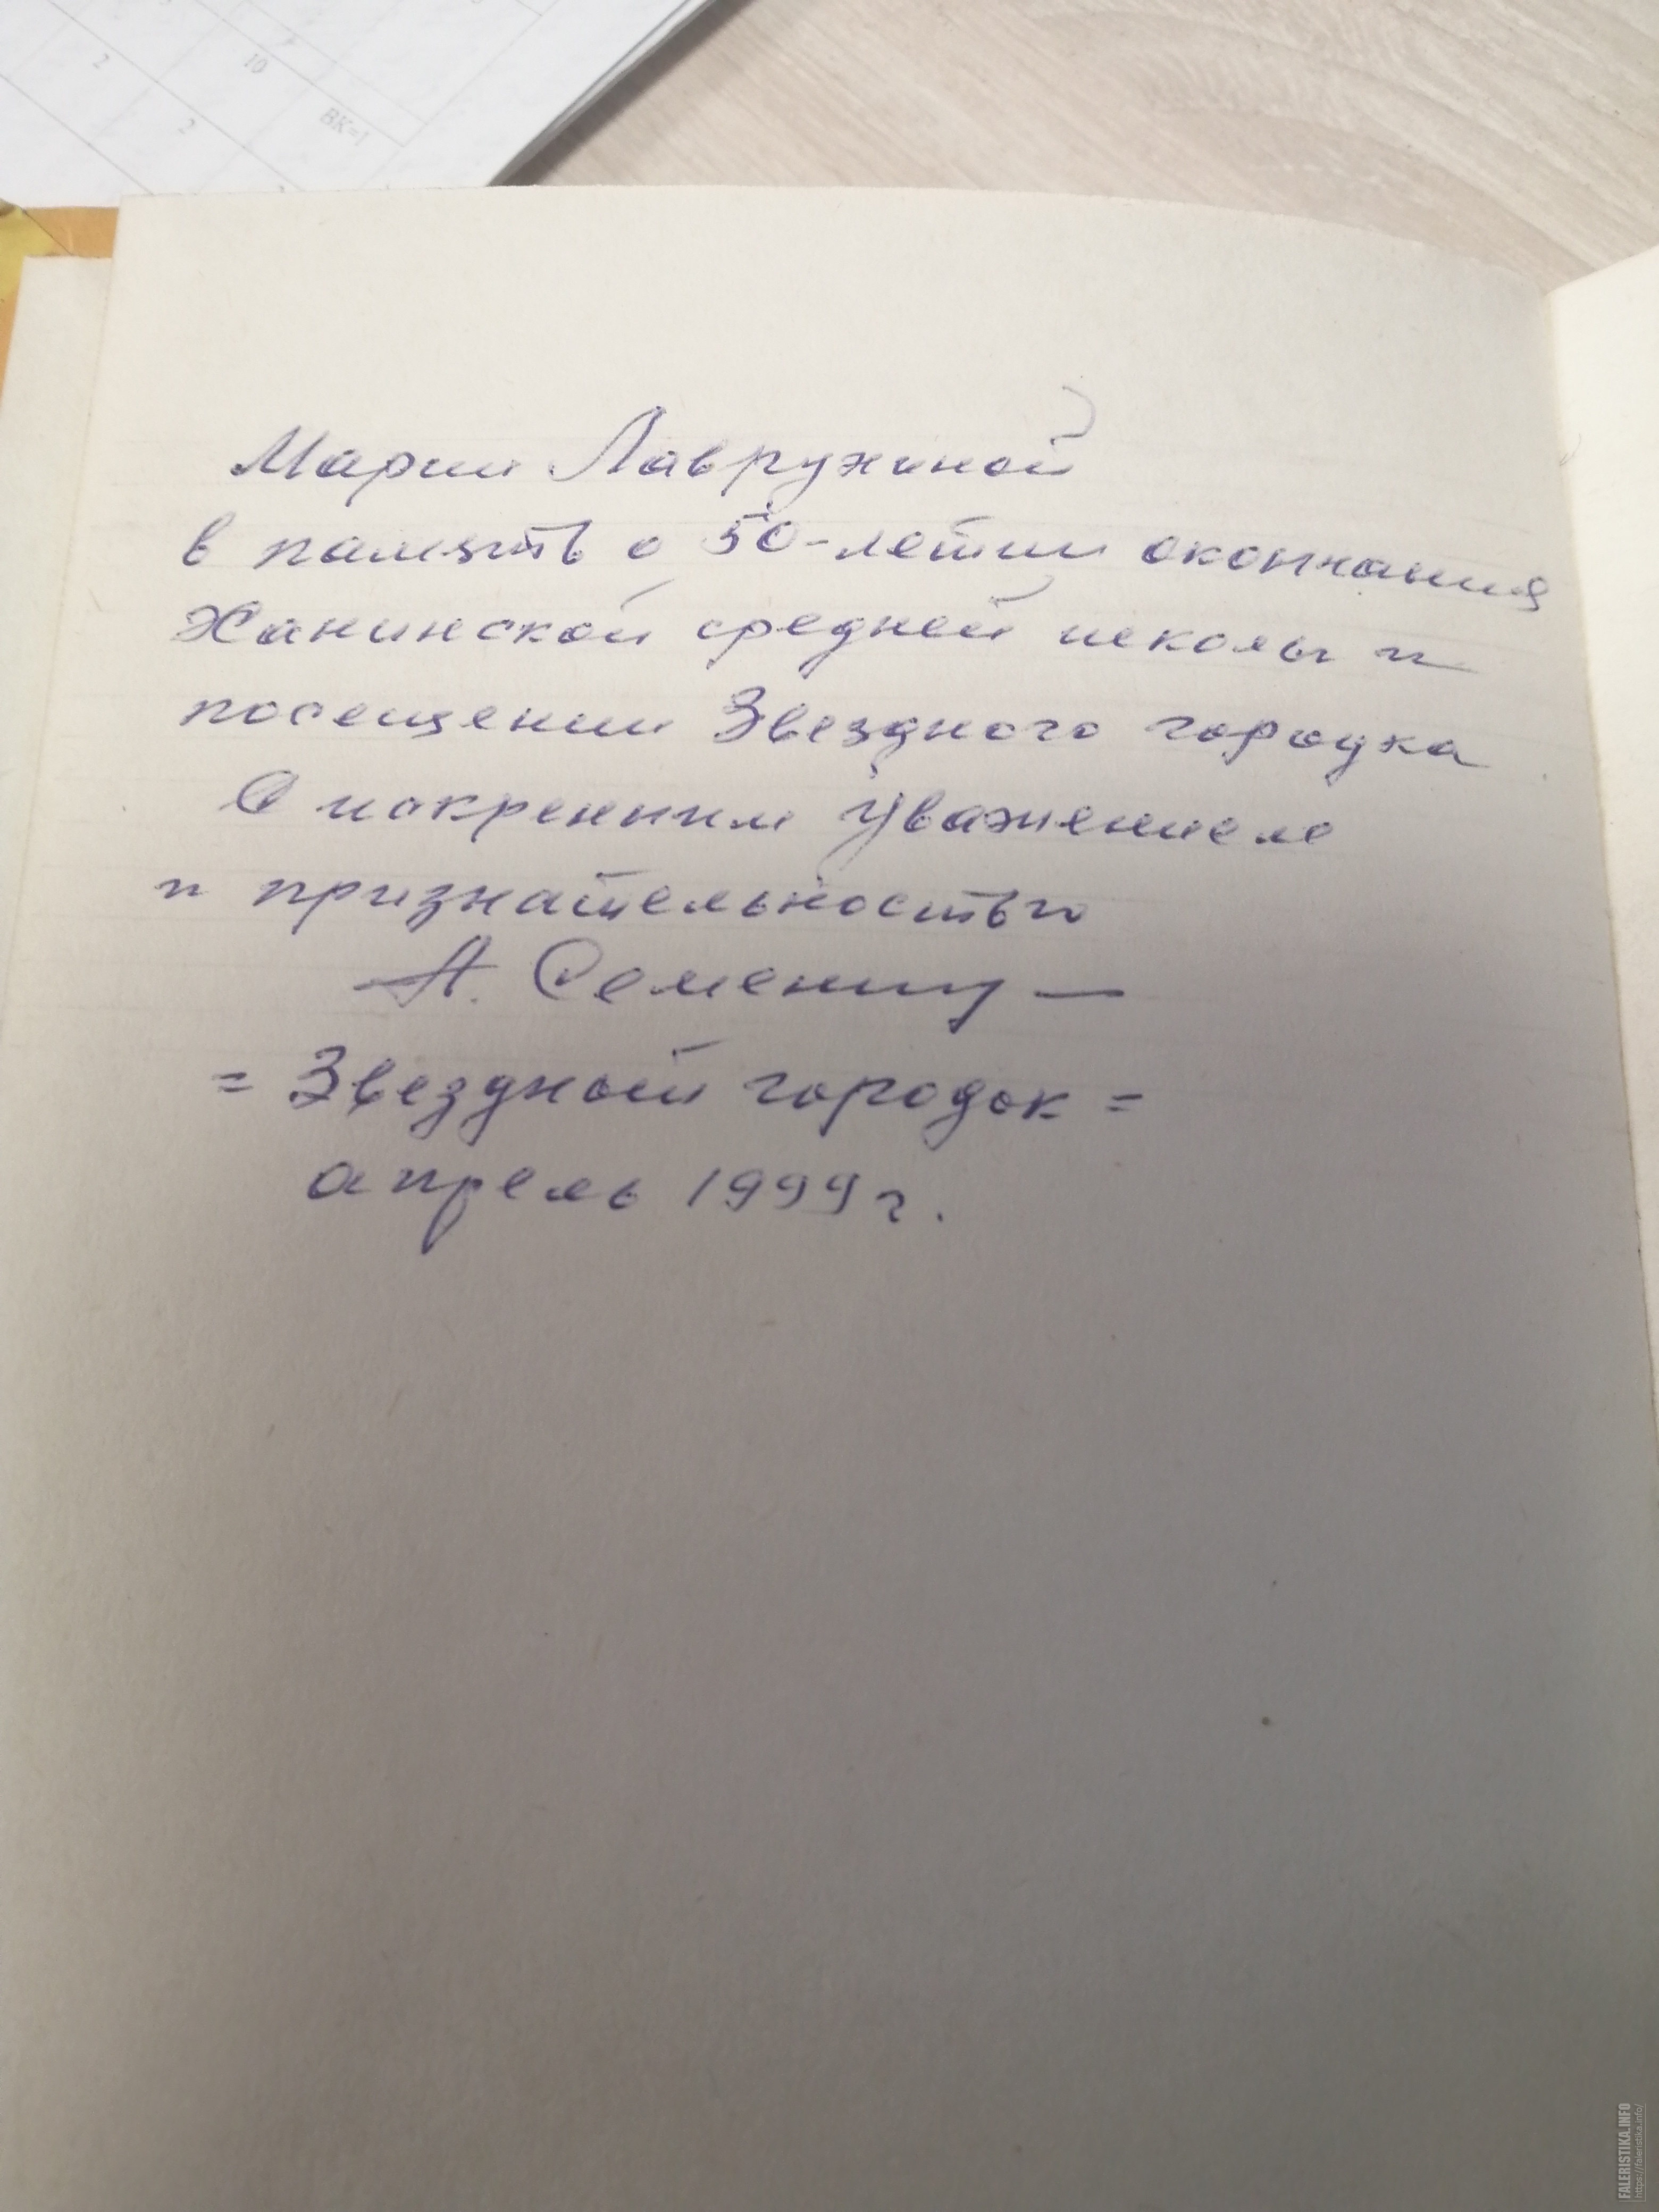 2
10
2
ВК=1
Марии Лавружиной
в память о 50-летии окончания
Ханинской средней школы и
посещении Звездного городка
С искренним уважением
и признательностью
А. Семенищ
= Звездный городок =
апрель 1999 г.
FALERISTIKA.INFO
https://faleristika.info/